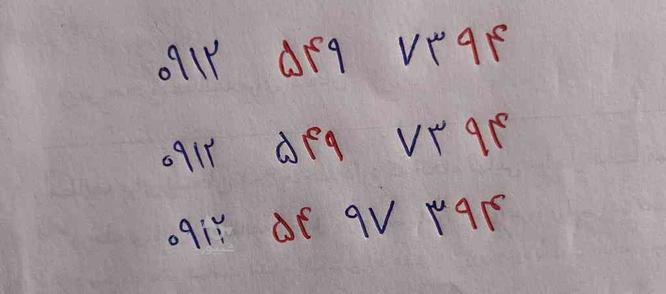 ۰۹۱۲ ۵۴۹ ۷۳۹۴
۰۹۱۲ ۵۴۹ ۷۳۹۴
۰۹۱۲ ۵۴ ۹۷ ۳۹۴